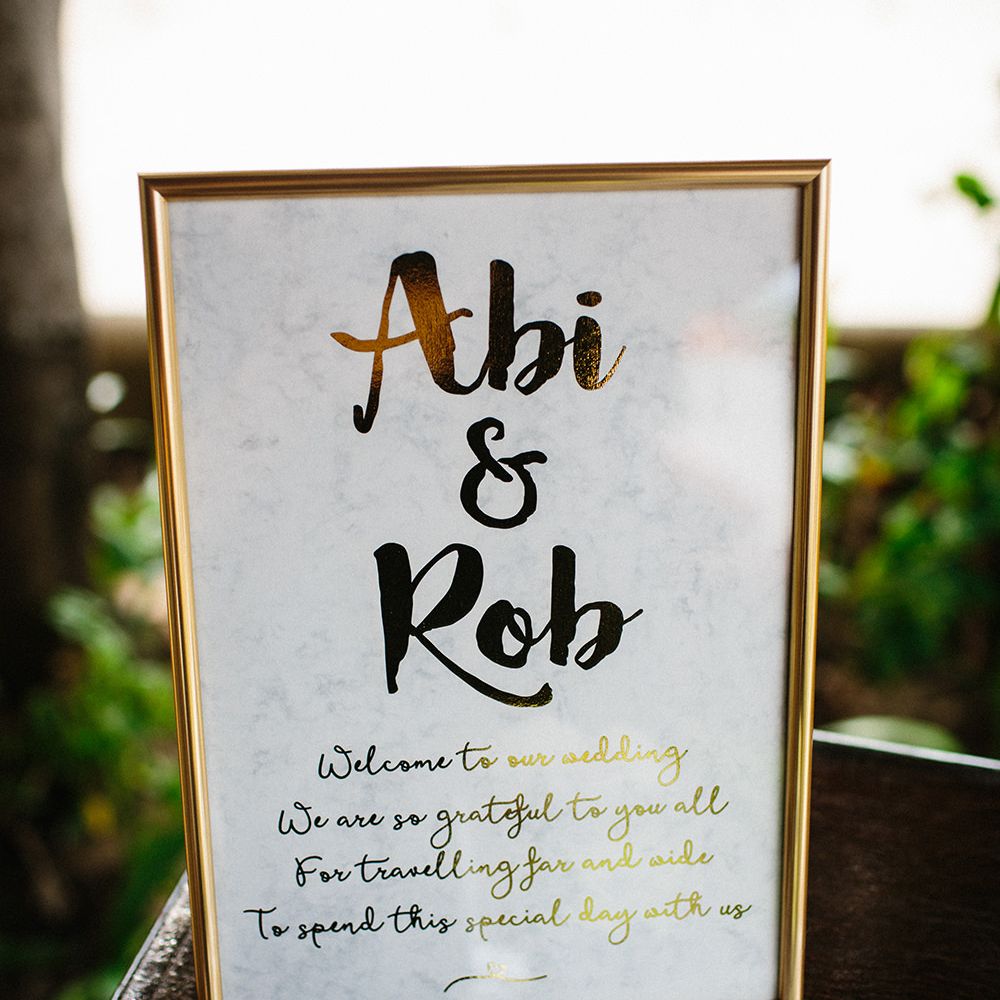 Abi
&
Rob
Welcome to our wedding
We are so grateful to you all
For travelling far and wide
To spend this special day with us